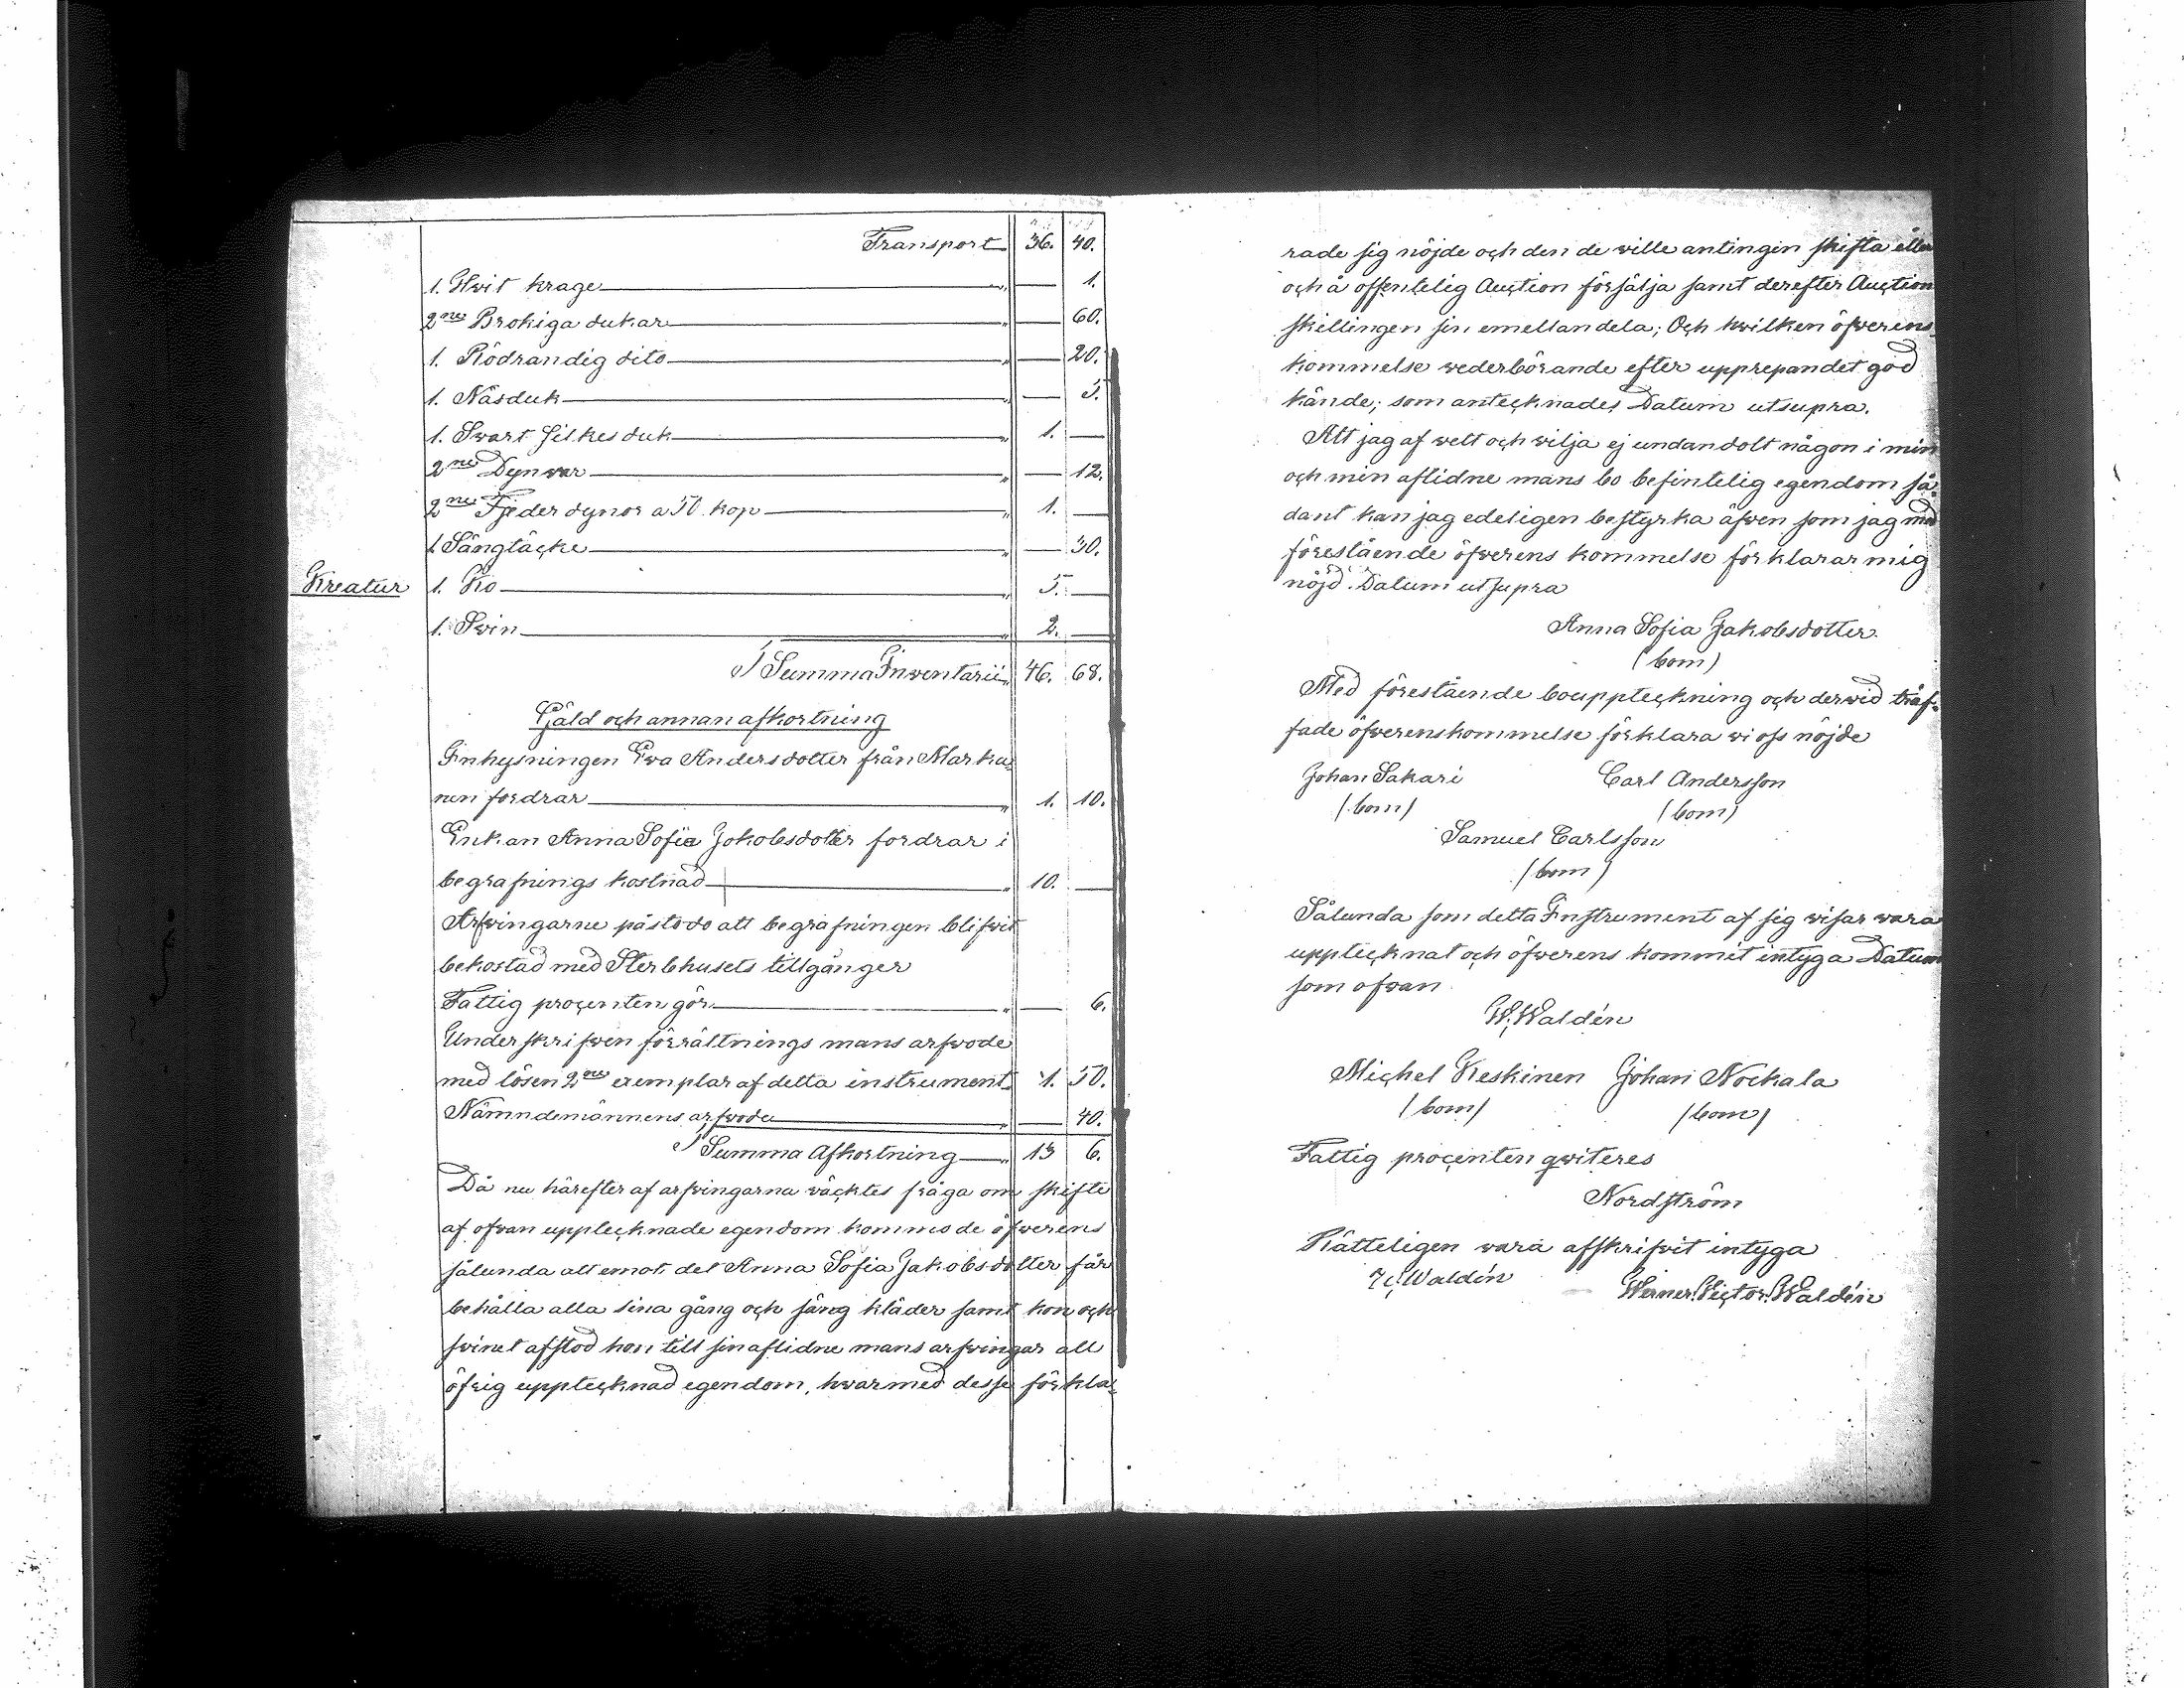 Transport 36. 40.
1. Hwit krage " — 1.
2ne Brokiga dukar " — 60.
1. Rödrandig dito " — 20.
1. Näsduk " — 5.
1. Swart Silkes duk " 1. —
2ne Dynwar " — 12.
2ne Fjeder dynor a 50. kop " 1. —
1 Sängtäcke " — 30.
Kreatur 1. Ko " 5. —
1. Swin " 2. —
Summa Inventarii " 46. 68.
Gäld och annan afkortning
Inhysningen Eva Andersdotter från Marku-
nen fordrar " 1. 10.
Enkan Anna Sofia Jakobsdotter fordrar i
begrafnings kostnad " 10. —
Arfwingarne påstodo att begrafningen blifwit
bekostad med Sterbhusets tillgånger
Fattig procenten gör " — 6.
Underskrifwen förrättnings mans arfwode
med lösen 2ne exemplar af detta instrument 1. 50.
Nämndemännens arfwode " — 40.
Summa Afkortning " 13 6.
Då nu härefter af arfwingarna väcktes fråga om skifte
af ofwan upptecknade egendom kommo de öfwerens
sålunda att emot det Anna Sofia Jakobsdotter får
behålla alla sina gång och säng kläder samt kon och
swinet afstod hon till sin aflidne mans arfwingar all
öfrig upptecknad egendom, hwarmed desse förkla-
rade sig nöjde och den de wille antingen skifta eller
och å offentelig Auction försälja samt derefter Auction
skillingen sin emellan dela; Och hwilken öfwerens-
kommelse wederbörande efter upprepandet god
kände; som antecknades Datum utsupra.
Att jag af wett och wilja ej undandolt någon i min
och min aflidne mans bo befintelig egendom så-
dant kan jag edeligen bestyrka äfwen som jag med
förestående öfwerens kommelse förklarar mig
nöjd. Datum utsupra
Anna Sofia Jakobsdotter.
(bom)
Med förestående bouppteckning och derwid träf-
fade öfwerenskommelse förklara wi oss nöjde
Johan Sakari Carl Andersson
(bom) (bom)
Samuel Carlsson
(bom)
Sålunda som detta Instrument af sig wisar wara
upptecknat och öfwerens kommit intyga Datum
som ofwan
W. Waldén
Michel Keskinen Johan Nockala
(bom) (bom)
Fattig procenten qwiteres
Nordström
Rätteligen wara afskrifwit intyga
Waldén Werner Victor Waldén